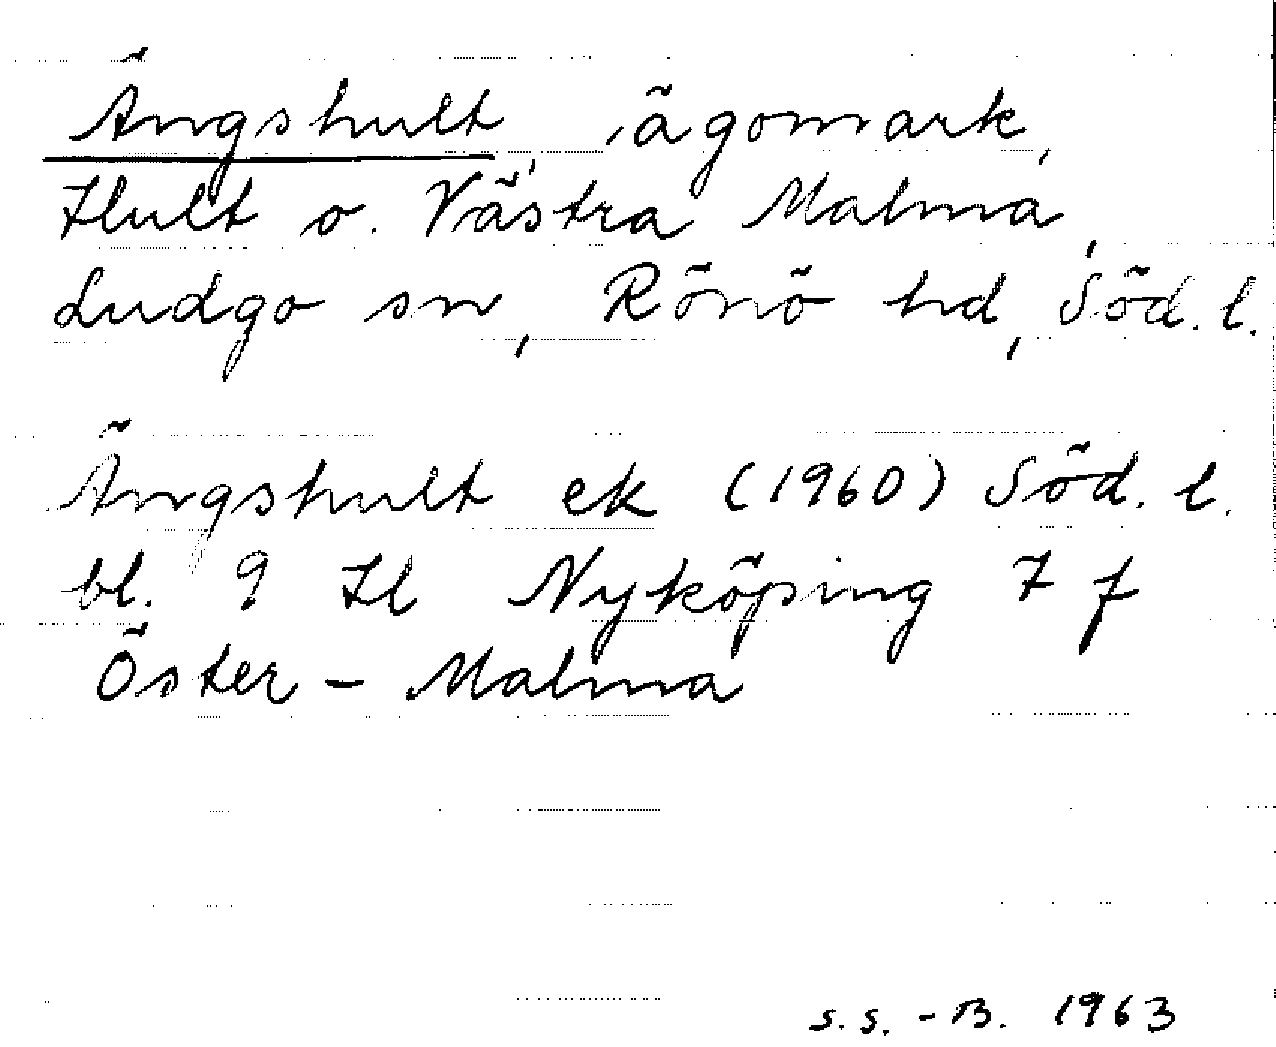 Ängshult, ägomark,
Hult o. Västra Malma,
Ludgo sn, Rönö hd, Söd. l.
Ängshult ek (1960) Söd. l.
bl. 9 H1 Nyköping 7 f
Öster-Malma
S.S.-B. 1963